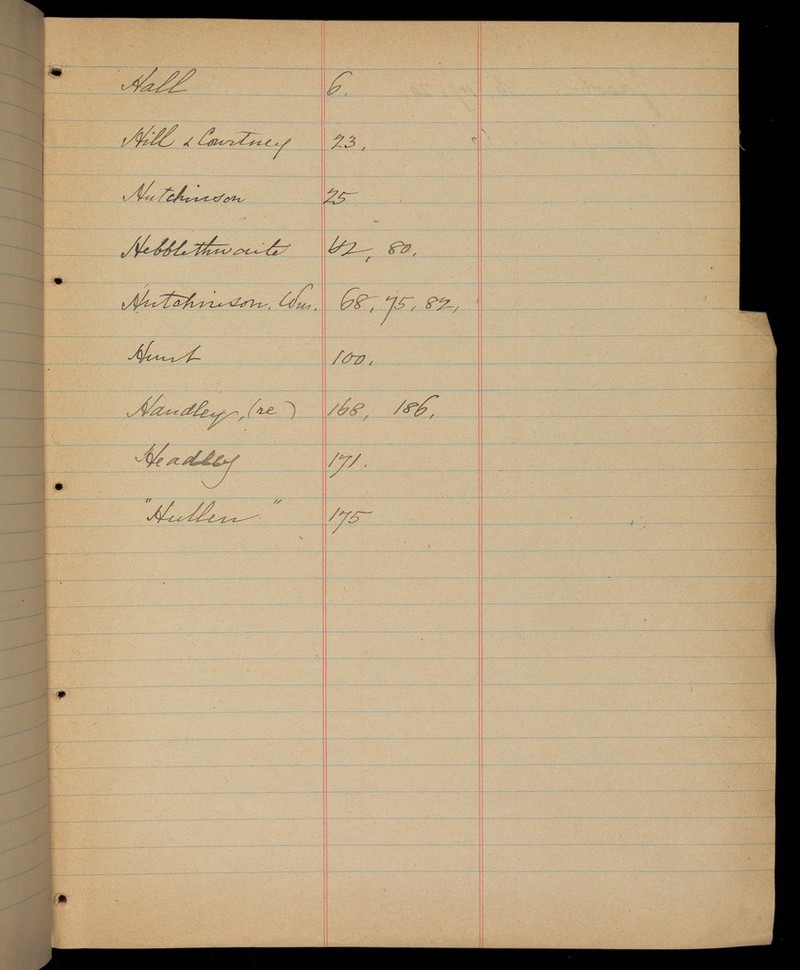 Hall 6.
Hill & Courtney 23.
Hutchinson 25
Hebblethwaite 42, 80.
Hutchinson, Wm. 68, 75, 82,
Hunt 100.
Handley, (re) 168, 186,
Headley 171.
"Hullen" 175